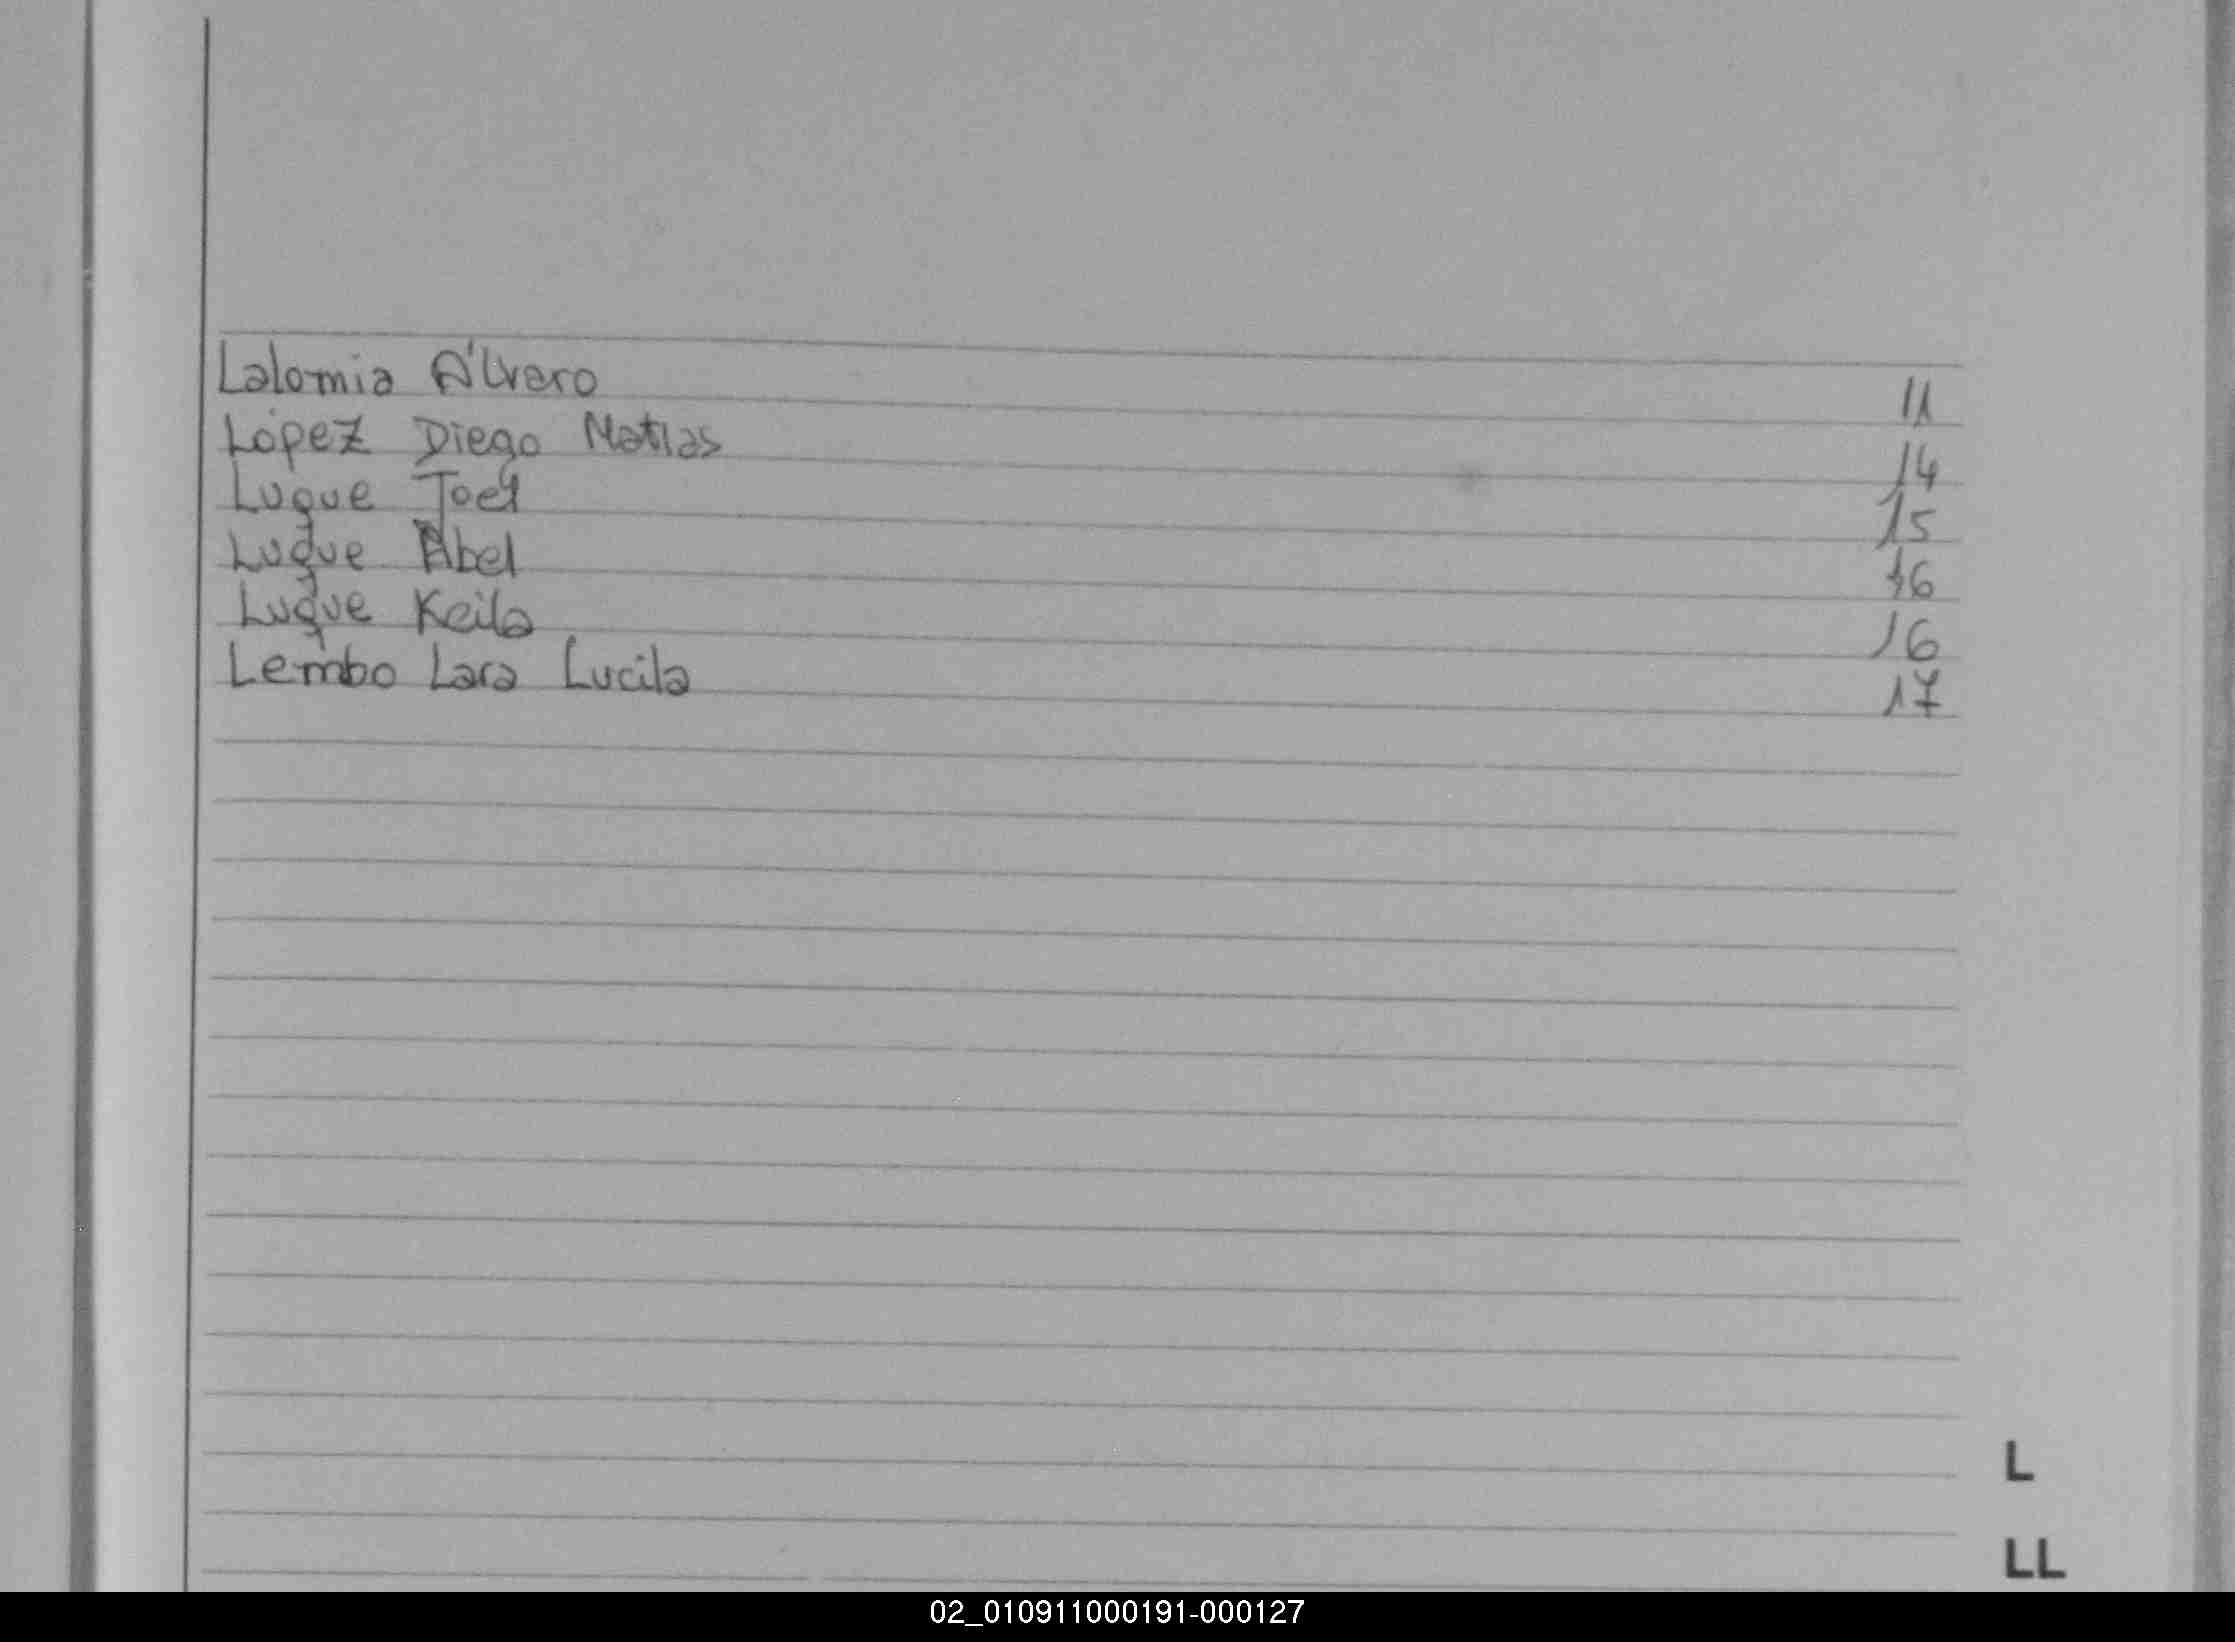 Lalomia Álvaro 11
López Diego Matias 14
Luque Joel 15
Luque Abel 16
Luque Keila 16
Lembo Lara Lucila 17
L
LL
02_010911000191-000127